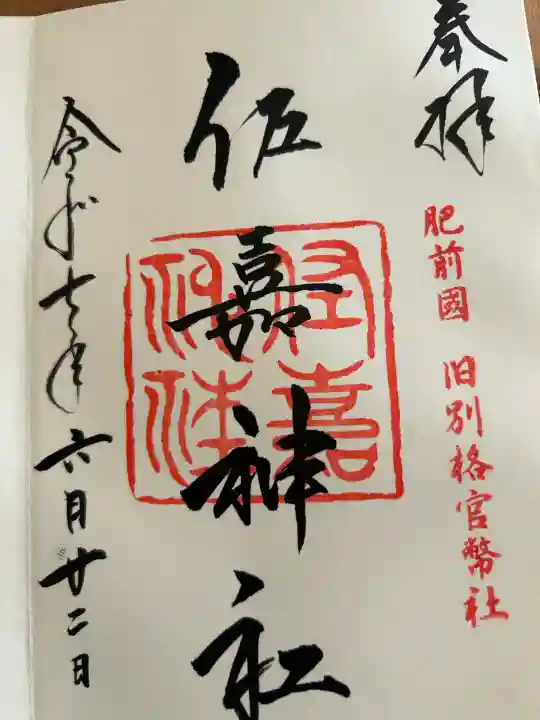 奉拝
肥前國 旧別格官幣社
佐嘉神社
佐嘉神社
令和七年六月廿二日